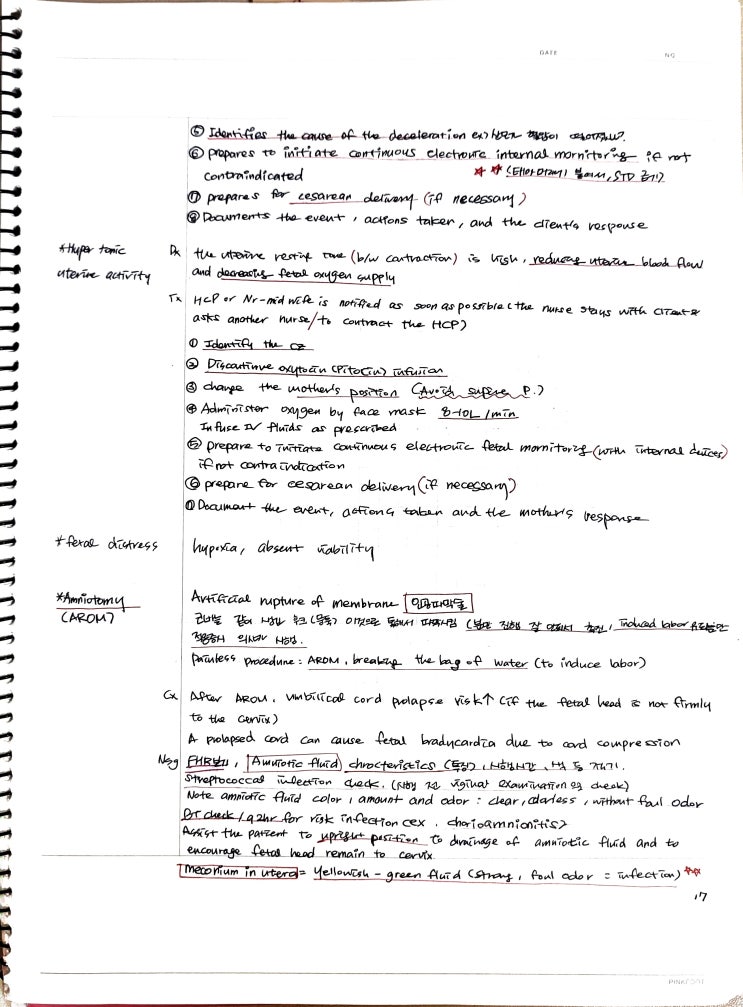 DATE NO
⑤ Identifies the cause of the deceleration ex)
⑥ prepares to initiate continuous electronic internal mornitoring if not
contraindicated ★★ (태아머리, STD 금기)
⑦ prepares for cesarean delivery (if necessary)
⑧ Documents the event, actions taken, and the client's response
*Hyper tonic
uterine activity
Dx the uterine resting tone (b/w contraction) is high, reducing uterine blood flow
and decreasing fetal oxygen supply
Tx HCP or Nr-mid wife is notified as soon as possible (the nurse stays with client &
asks another nurse/to contract the HCP)
① Identify the cz
② Discontinue oxytocin (Pitocin) infusion
③ change the mother's position (Avoid supine P.)
④ Administer oxygen by face mask 8-10L/min
Infuse IV fluids as prescribed
⑤ prepare to initiate continuous electronic fetal mornitoring (with internal devices)
if not contraindication
⑥ prepare for cesarean delivery (if necessary)
⑦ Document the event, actions taken and the mother's response
*fetal distress hypoxia, absent viability
*Amniotomy
(AROM)
Artificial rupture of membrane 인공파막술
이것으로 induced labor
의사가 시행.
Painless procedure: AROM, breaking the bag of water (to induce labor)
Cx After AROM, umbilical cord prolapse risk↑ (if the fetal head is not firmly
to the cervix)
A prolapsed cord can cause fetal bradycardia due to cord compression
Nsg FHR, Amniotic fluid chrocteristics (특징), 시행시간, 색 등 기
streptococcal infection check. (시행 전 viginal examination check)
Note amniotic fluid color, amount and odor : clear, colorless, without foul odor
BT check / q2hr for risk infection (ex. chorioamnionitis)
Assist the patient to upright position to drainage of amniotic fluid and to
encourage fetal head remain to cervix
meconium in utero = yellowish-green fluid (strong, foul odor = infection) ★★
17